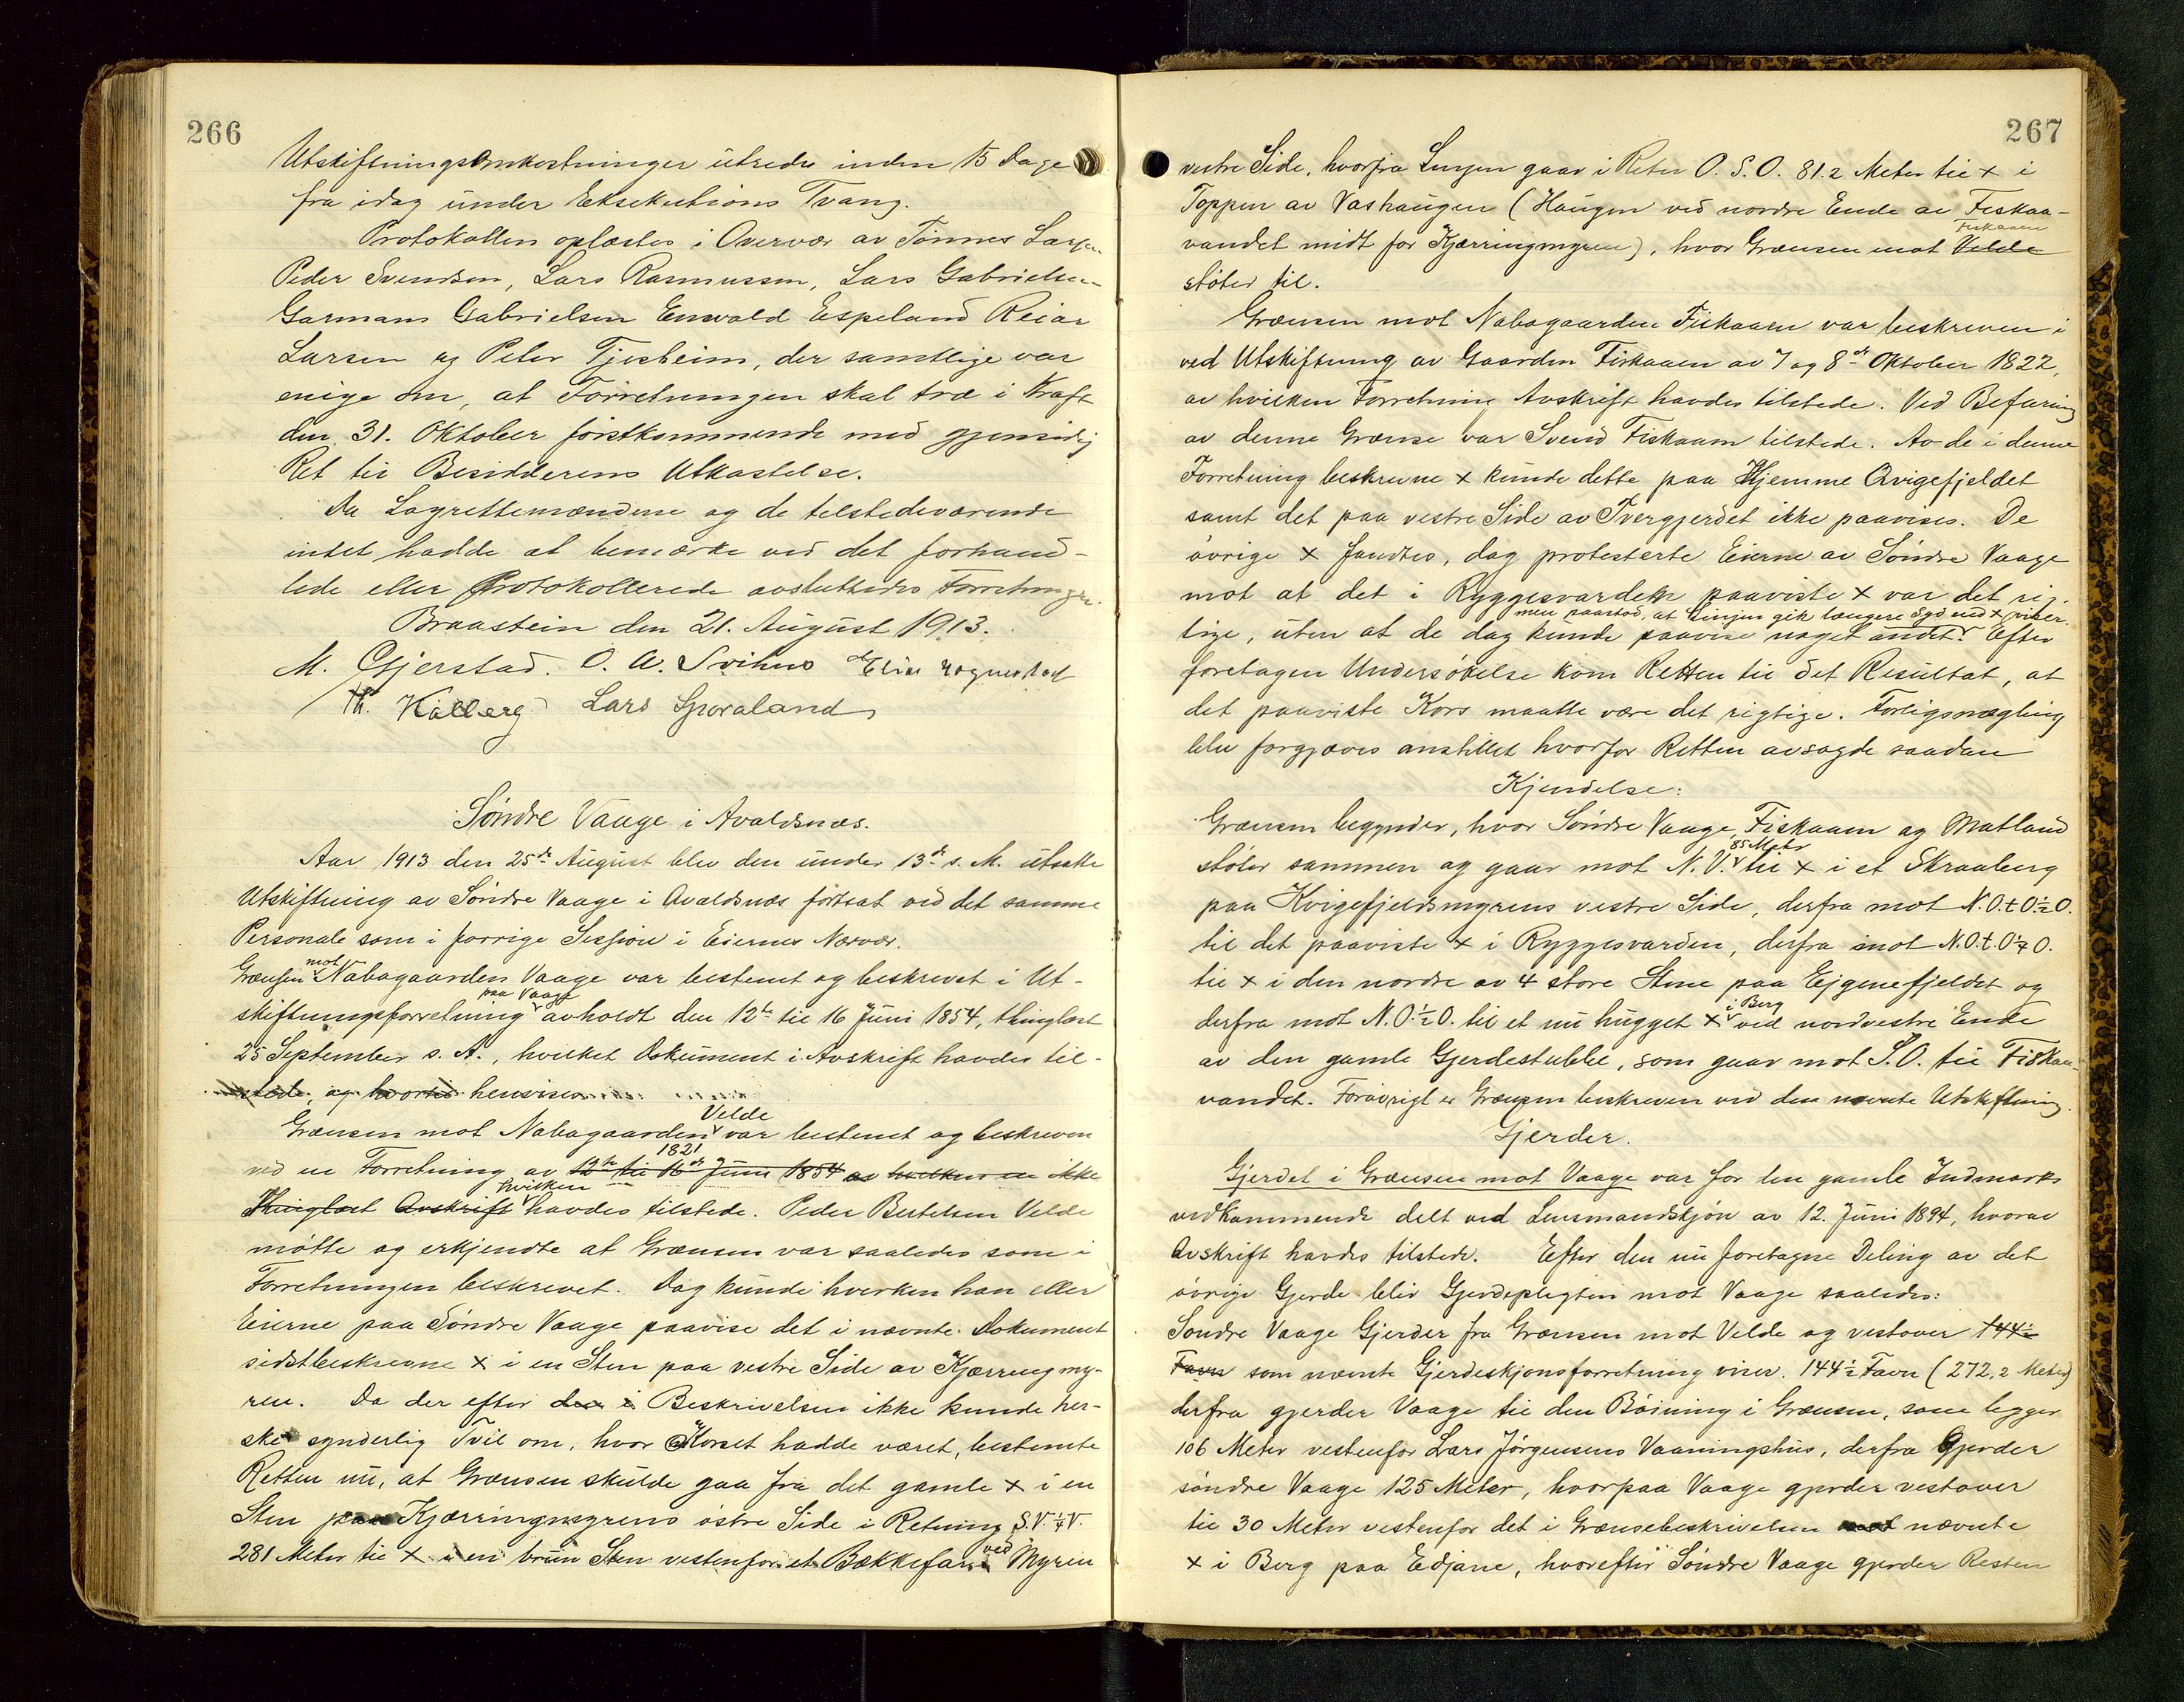 266
Utskiftningsomkostninger utredes inden 15 Dage
fra idag under Eksekutions Tvang.
Protokollen oplæstes i Overvær av Tønnes Larsen
Peder Svendsen, Lars Rasmussen, Lars Gabrielsen
Garmann Gabrielsen Enwald Espeland Reiar
Larsen og Peter Tjosheim, der samtlige var
enige om, at Forretningen skal træ i Kraft
den 31. Oktober førstkommende med gjensidig
Ret til Besidderens Utkastelse.
Da Lagrettemændene og de tilstedeværende
intet hadde at bemærke ved det forhand-
lede eller Protokollerede avsluttedes Forretningen.
Braastein den 21. August 1913.
M. Gjerstad. O. A. Svihus Elias Rognestad
Th. Kalberg Lars Sporaland
Søndre Vaage i Avaldsnæs.
Aar 1913 den 25de August blev den under 13de s. M. utsatte
Utskiftning av Søndre Vaage i Avaldsnæs fortsat ved det samme
Personale som i forrige Session i Eiernes Nærvær.
Grænsen mot Nabogaarden Vaage var bestemt og beskrevet i Ut-
skiftningsforretning paa Vaage avholdt den 12te til 16 Juni 1854, thinglæst
25 September s. A., hvilket Dokument i Avskrift havdes til-
stede, og hvortil henvises
Grænsen mot Nabogaarden Velde var bestemt og beskreven
ved en Forretning av 1821 12te til 16de Juni 1854 av hvilken en ikke
Thinglæst Avskrift hvilken havdes tilstede. Peder Bertelsen Velde
møtte og erkjendte at Grænsen var saaledes som i
Forretningen beskrevet. Dog kunde hverken han eller
Eierne paa Søndre Vaage paavise det i nævnte Dokument
sidstbeskrevne x i en Sten paa vestre Side av Kjærringmy-
ren. Da der efter den i Beskrivelsen ikke kunde her-
ske synderlig Tvil om, hvor Korset hadde været, bestemte
Retten nu, at Grænsen skulde gaa fra det gamle x i en
Sten paa Kjærringmyrens østre Side i Retning S.V. 1/4 V.
281 Meter til x i en brun Sten vestenfor et Bækkefar ved Myren
267
vestre Side, hvorfra Linjen gaar i Retn O. S. O. 81.2 Meter til x i
Toppen av Vashaugen (Haugen ved nordre Ende av Fiskaa-
vandet midt for Kjærringmyren), hvor Grænsen mot Velde Fiskaaen
støter til.
Grænsen mot Nabogaarden Fiskaaen var beskreven i
ved Utskiftning av Gaarden Fiskaaen av 7 og 8de Oktober 1822,
av hvilken Forretning Avskrift havdes tilstede. Ved Befaring
av denne Grænse var Svend Fiskaaen tilstede. Av de i denne
Forretning beskrevne x kunde dette paa Hjemme Qvigefjeldet
samt det paa vestre Side av Tvergjerdet ikke paavises. De
øvrige x fandtes, dog protesterte Eierne av Søndre Vaage
mot at det i Ryggesvarden paaviste x var det rig-
tige, uten at de dog kunde paavise noget andet. men paastod, at Linjen gik længere Syd end x viser. Efter
foretagen Undersøkelse kom Retten til det Resultat, at
det paaviste Kors maatte være det rigtige. Forligsmægling
blev forgjæves anstillet hvorfor Retten avsagde saadan
Kjendelse:
Grænsen begynder, hvor Søndre Vaage, Fiskaaen og Matland
støter sammen og gaar mot N. V. 85 Meter til x i et Skraaberg
paa Kvigefjeldsmyrens vestre Side, derfra mot N.O.t.O. 1/2 O.
til det paaviste x i Ryggesvarden, derfra mot N.O.t.O 1/4 O.
til x i den nordre av 4 store Stene paa Ejgenefjeldet og
derfra mot N.O. 1/2 O. til et nu hugget x i Berg ved nordvestre Ende
av den gamle Gjerdestubbe, som gaar mot S.O. til Fiskaa-
vandet. Forøvrigt er Grænsen beskreven ved den nævnte Utskiftning.
Gjerder.
Gjerdet i Grænsen mot Vaage var for den gamle Indmarks
vedkommende delt ved Lensmandskjøn av 12. Juni 1894, hvorav
Avskrift havdes tilstede. Efter den nu foretagne Deling av det
øvrige Gjerde blir Gjerdepligten mot Vaage saaledes:
Søndre Vaage Gjerder fra Grænsen mot Velde og vestover 144 1/2
Favn som nævnte Gjerdeskjønsforretning viser. 144 1/2 Favn (272,2 Meter)
derfra gjerder Vaage til den Bøining i Grænsen, som ligger
106 Meter vestenfor Lars Jørgensens Vaaningshus, derfra Gjerder
søndre Vaage 125 Meter, hvorpaa Vaage gjerder vestover
til 30 Meter vestenfor det i Grænsebeskrivelsen mot nævnte
x i Berg paa Edjane, hvorefter Søndre Vaage gjerder Resten